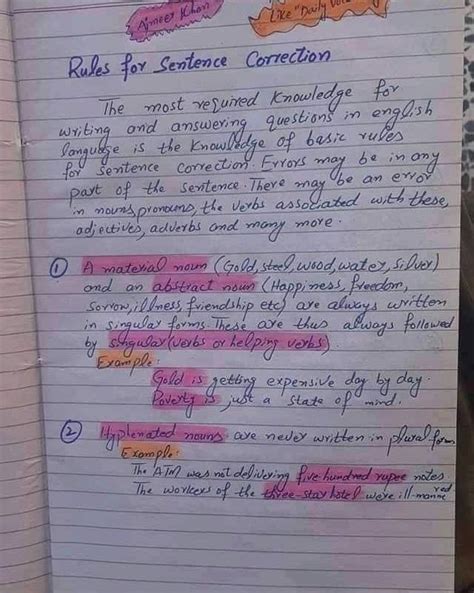 Ajmeer Khan
Like "Daily
Rules for Sentence Correction
The most required Knowledge for
writing and answering questions in english
language is the Knowledge of basic rules
for sentence correction. Errors may be in any
part of the sentence. There may be an error
in nouns, pronouns, the verbs associated with these,
adjectives, adverbs and many more.
① A material noun (Gold, steel, wood, water, silver)
and an abstract noun (Happiness, freedom,
sorrow, illness, friendship etc) are always written
in singular forms. These are thus always followed
by singular (verbs or helping verbs).
Example:
Gold is getting expensive day by day.
Poverty is just a state of mind.
② Hyphenated nouns are never written in plural form
Example:
The ATM was not delivering five hundred rupee notes
The workers of the three-star hotel were ill-mannered